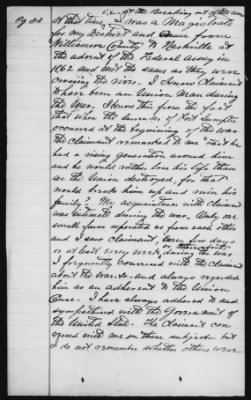 i.e. at the breaking out of the war
Pg 34 at that time, I was a Magistrate
for my District and came from
Williamson County to Nashville at
the advent of the Federal Army in
1862. and met the same as they were
crossing the river. I know Claimant
to have been an Union Man during
the War. I know this from the fact
that when the surrender of Fort Sumpter
occurred at the beginning of the war
The Claimant remarked to me "that he
had a rising generation around him
and he would rather lose his life than
see the Union destroyed, for that it
would break him up and ruin his
family". My acquaintance with claimant
was intimate during the war. Only one
small farm separated us from each other
and I saw claimant, every few days
or at least every week, during the war.
I frequently conversed with the Claimant
about the war and always regarded
him as an adherent to the Union
Cause. I have always adhered to and
sympathised with the Government of
the United States. The Claimant con
versed with me on these subjects but
I do not remember whether others were